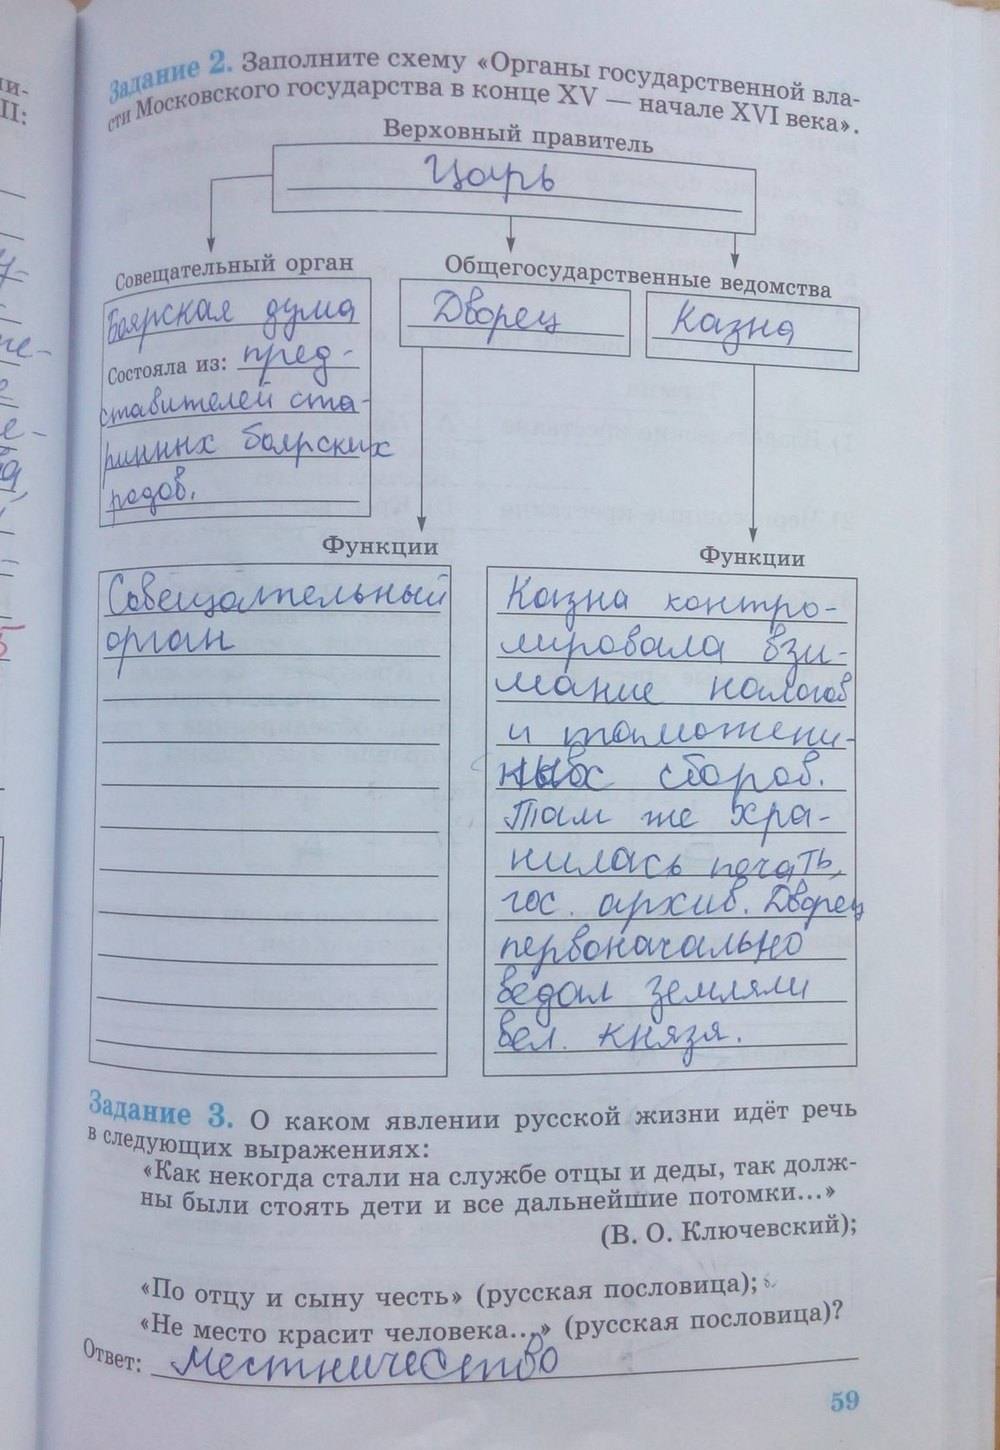 Задание 2. Заполните схему «Органы государственной вла-
сти Московского государства в конце XV — начале XVI века».
Верховный правитель
Царь
Совещательный орган
Боярская дума
Состояла из: пред-
ставителей ста-
ринных боярских
родов.
Общегосударственные ведомства
Дворец
Казна
Функции
Совещательный
орган
Функции
Казна контро-
лировала взи-
мание налогов
и таможен-
ных сборов.
Там же хра-
нилась печать,
гос. архив. Дворец
первоначально
ведал землями
вел. князя.
Задание 3. О каком явлении русской жизни идёт речь
в следующих выражениях:
«Как некогда стали на службе отцы и деды, так долж-
ны были стоять дети и все дальнейшие потомки...»
(В. О. Ключевский);
«По отцу и сыну честь» (русская пословица);
«Не место красит человека...» (русская пословица)?
Ответ: Местничество
59